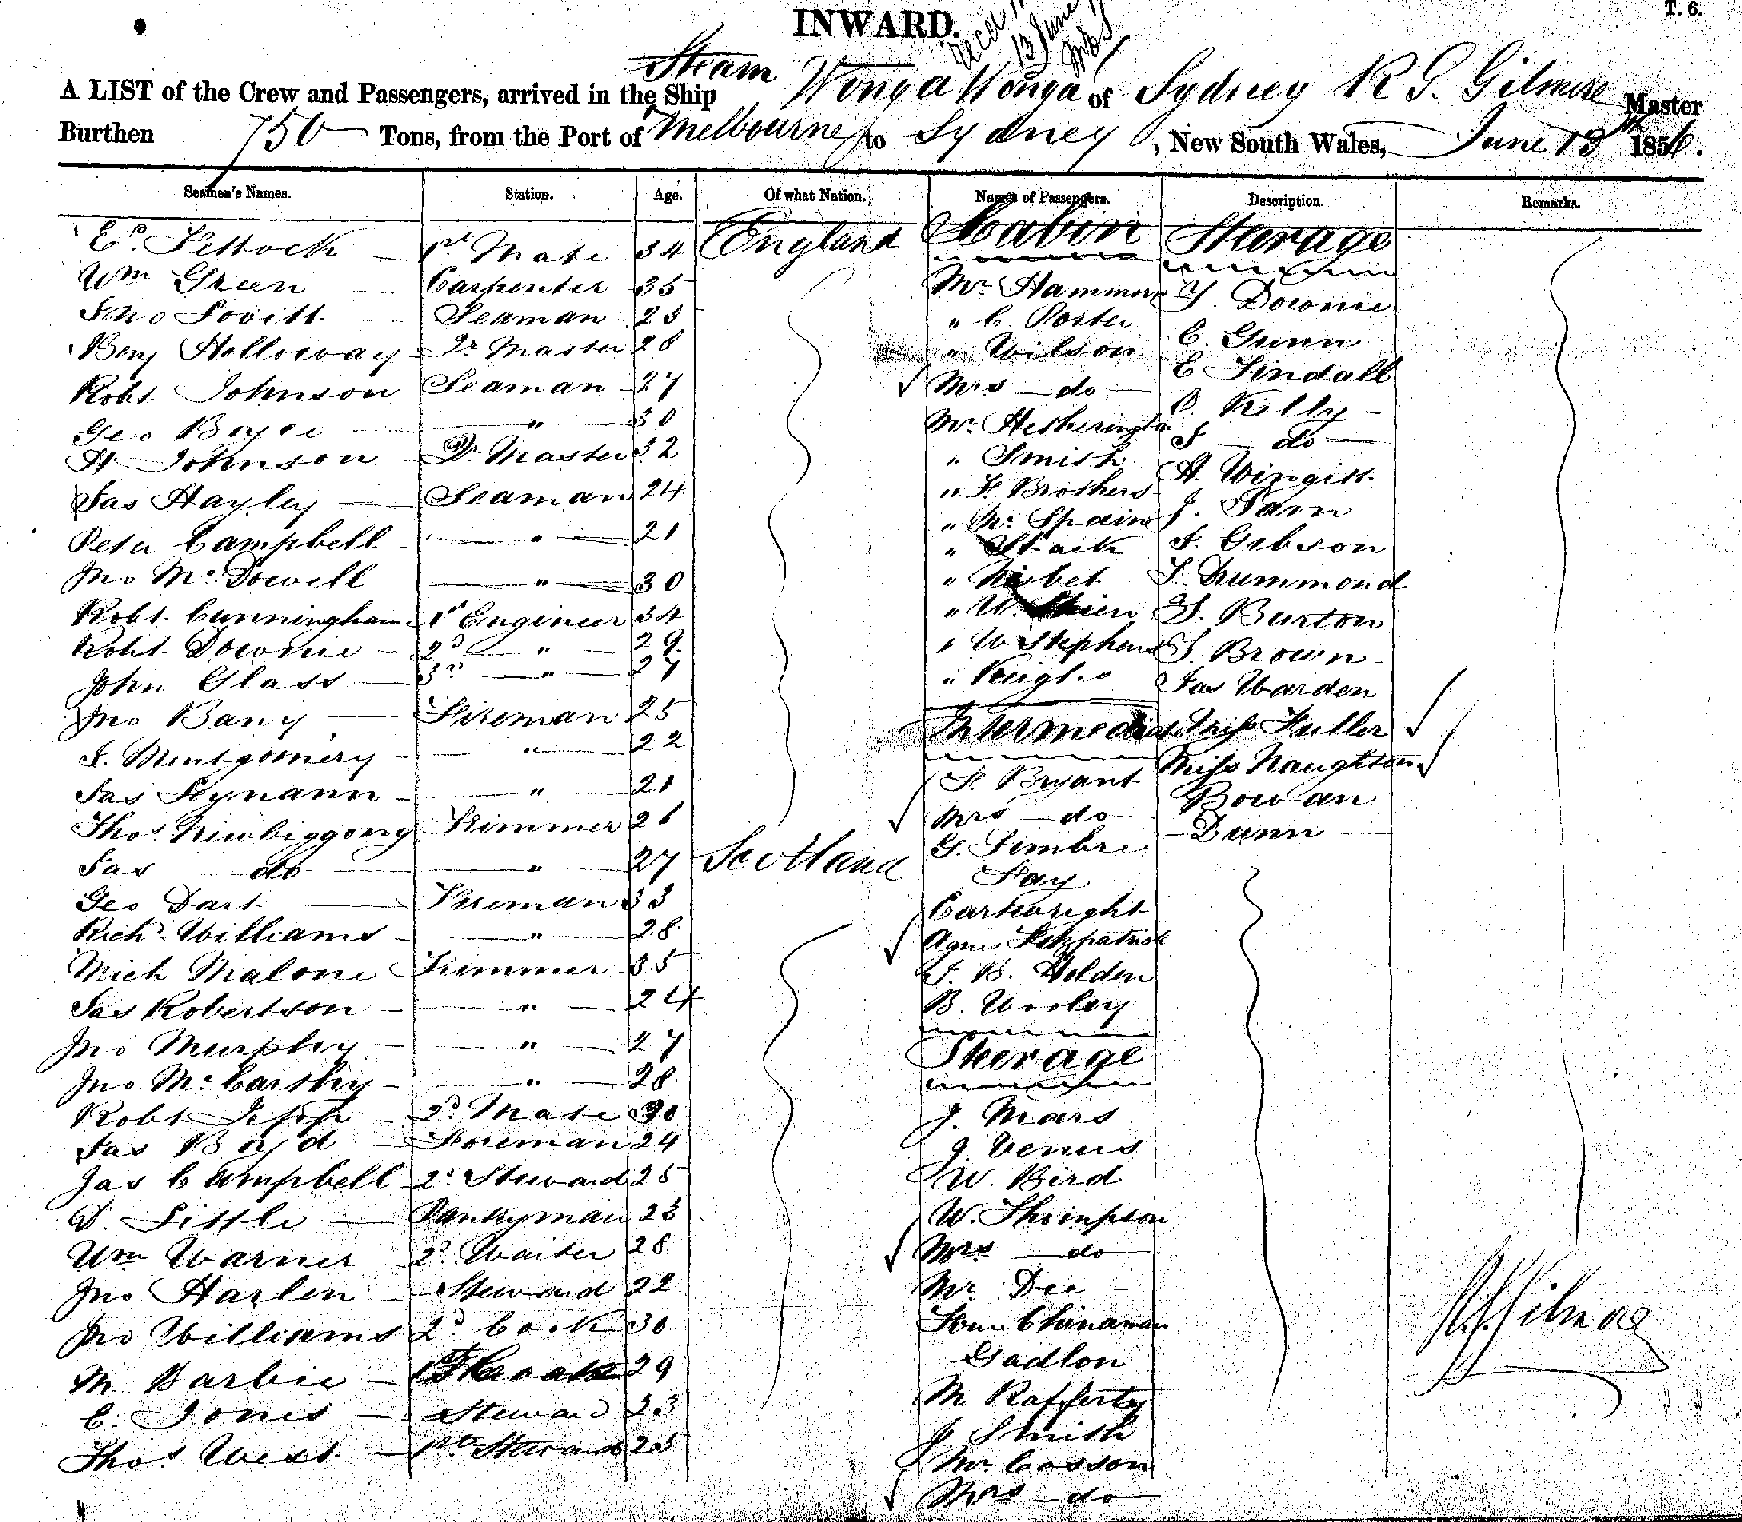 INWARD.
T. 6.
13 June
Steam
A LIST of the Crew and Passengers, arrived in the Ship Wonga Wonga of Sydney R G. Gilmore Master
Burthen 750 Tons, from the Port of Melbourne to Sydney, New South Wales, June 13th 1856.
Seamen's Names. Station. Age. Of what Nation. Names of Passengers. Description. Remarks.
1st Mate 34 England Cabin Sterage
Wm Green Carpenter 35 Mr Hammer T. Downie
Jno Lovitt Seaman 23 " C. Porter C. Gunn
Benj Holloway 2r Master 28 " Wilson E Tindall
Robt Johnson Seaman 27 Mrs do C. Kelly
Geo Boyce " 30 Mr Hetherington do
H Johnson Qr Master 32 " Smith H Wingitt
Jas Hayley Seaman 24 " F. Brothers J.
Peter Campbell " 21 " Spain J. Gibson
Jno McDowell " 30 " Nisbet T. Drummond
Robt Cunningham 1st Engineer 34 " W. Burton
Robt Downie 2d " 29 " W Stephens Brown
John Glass 3rd " 27 " Jas Warden
Jno Bany Fireman 25 Intermediate Miss Fuller
J. Montgomery " 22 Miss Naughton
Jas " 21 Bryant Bowan
Thos Newbiggong Trimmer 26 Mrs do Dunn
Jas do " 27 Scotland G. Timbre
Geo Dart Fireman 33 Fay
Richd Williams " 28 Cartwright
Mich Malone Trimmer 35 Agnes Fitzpatrick
Jas Robertson " 24 J. B. Holden
Jno Murphy " 27 B.
Jno McCarthy " 28 Sterage
Robt 2d Mate 30 J. Mars
Jas Boyd Foreman 24 J. Venus
Jas Campbell 2d Steward 25 W. Bird
D. Little Pantryman 23 W. Thrimpson
Wm Warner 2d Waiter 28 Mrs do
Jno Harlen Steward 22 Mr Dee
Jno Williams 2d Cook 30 Chinaman
M Barbie 1st Cook 29 Gadlon
C. Jones Steward 23 M Rafferty
Thos West Steward 25 J Smith
Mr Cosson
Mrs do
R G Gilmore